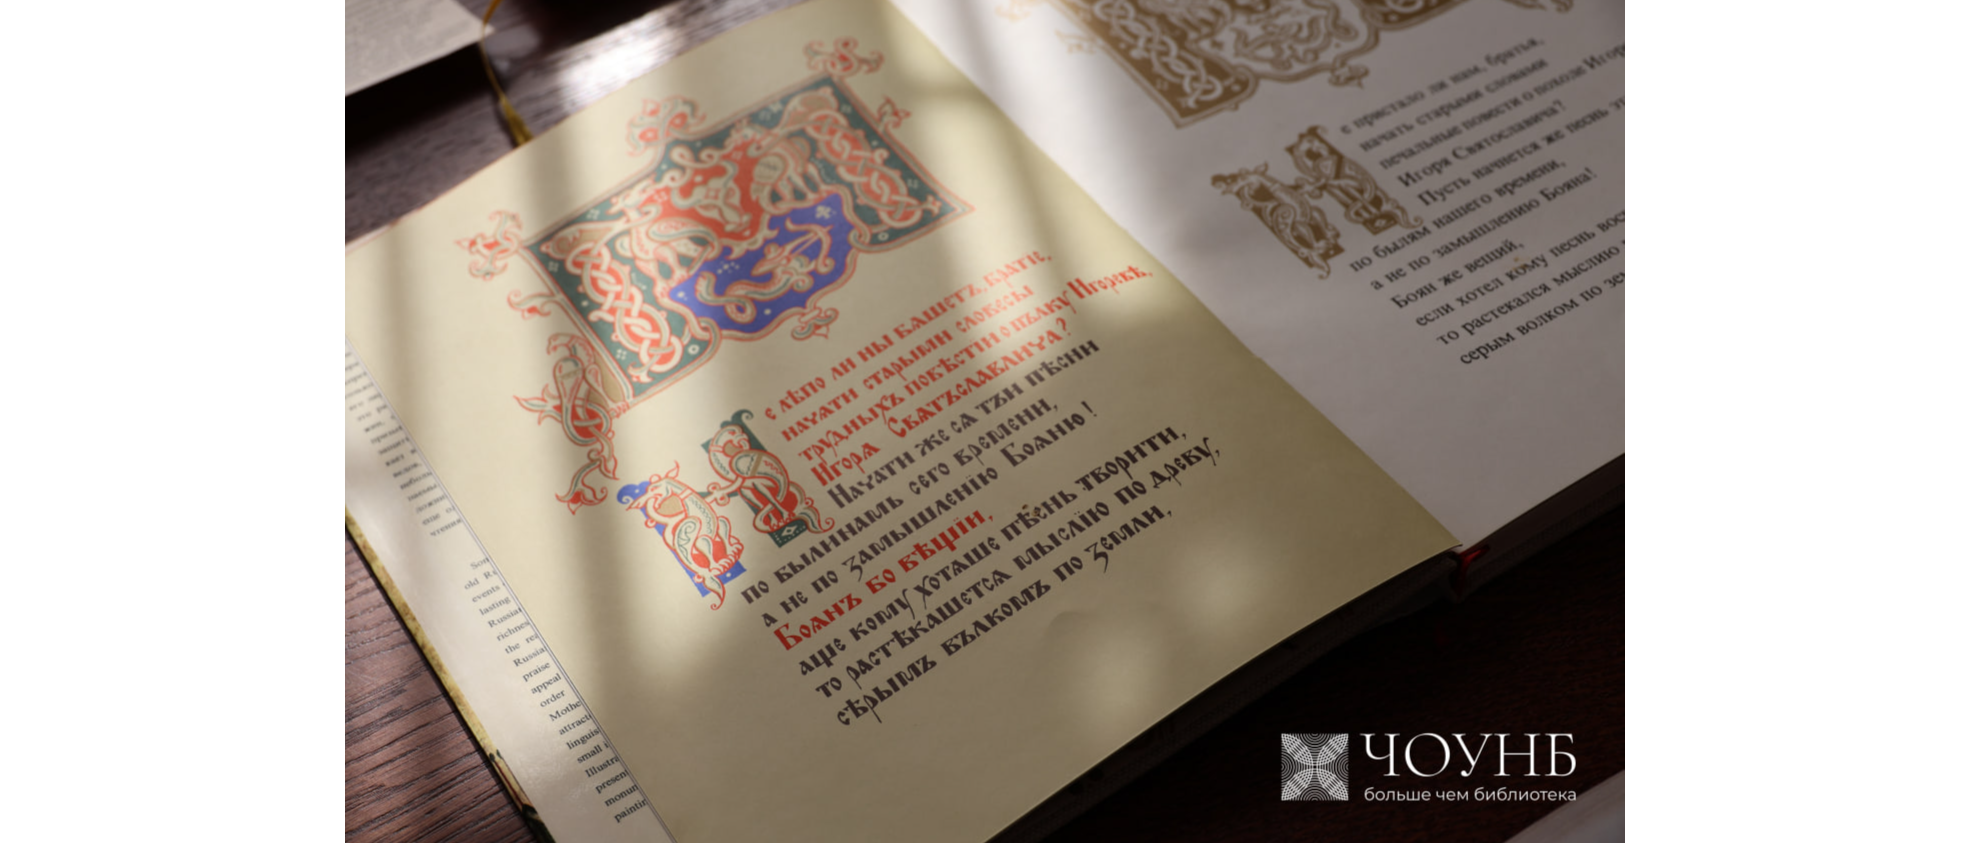 с лѣпо ли ны бяшетъ, братїе,
начяти старыми словесы
трудныхъ повѣстїи о пълку Игоревѣ,
Игоря Святъславлича?
Начати же ся тъи пѣсни
по былинамь сего времени,
а не по замышленїю Бояню!
Боянъ бо вѣщїи,
аще кому хотяше пѣснь творити,
то растѣкашется мыслїю по древу,
сѣрымъ вълкомъ по земли,
е пристало ли нам, братья,
начать старыми словами
печальные повести о походе Игоря
Игоря Святославича?
Пусть начнется же песнь
по былям нашего времени,
а не по замышлению Бояна!
Боян же вещий,
если хотел кому песнь
то растекался мыслию
серым волком по
old
events
lasting
Russia
the
Russia
praise
appeal
order
small
ЧОУНБ
больше чем библиотека